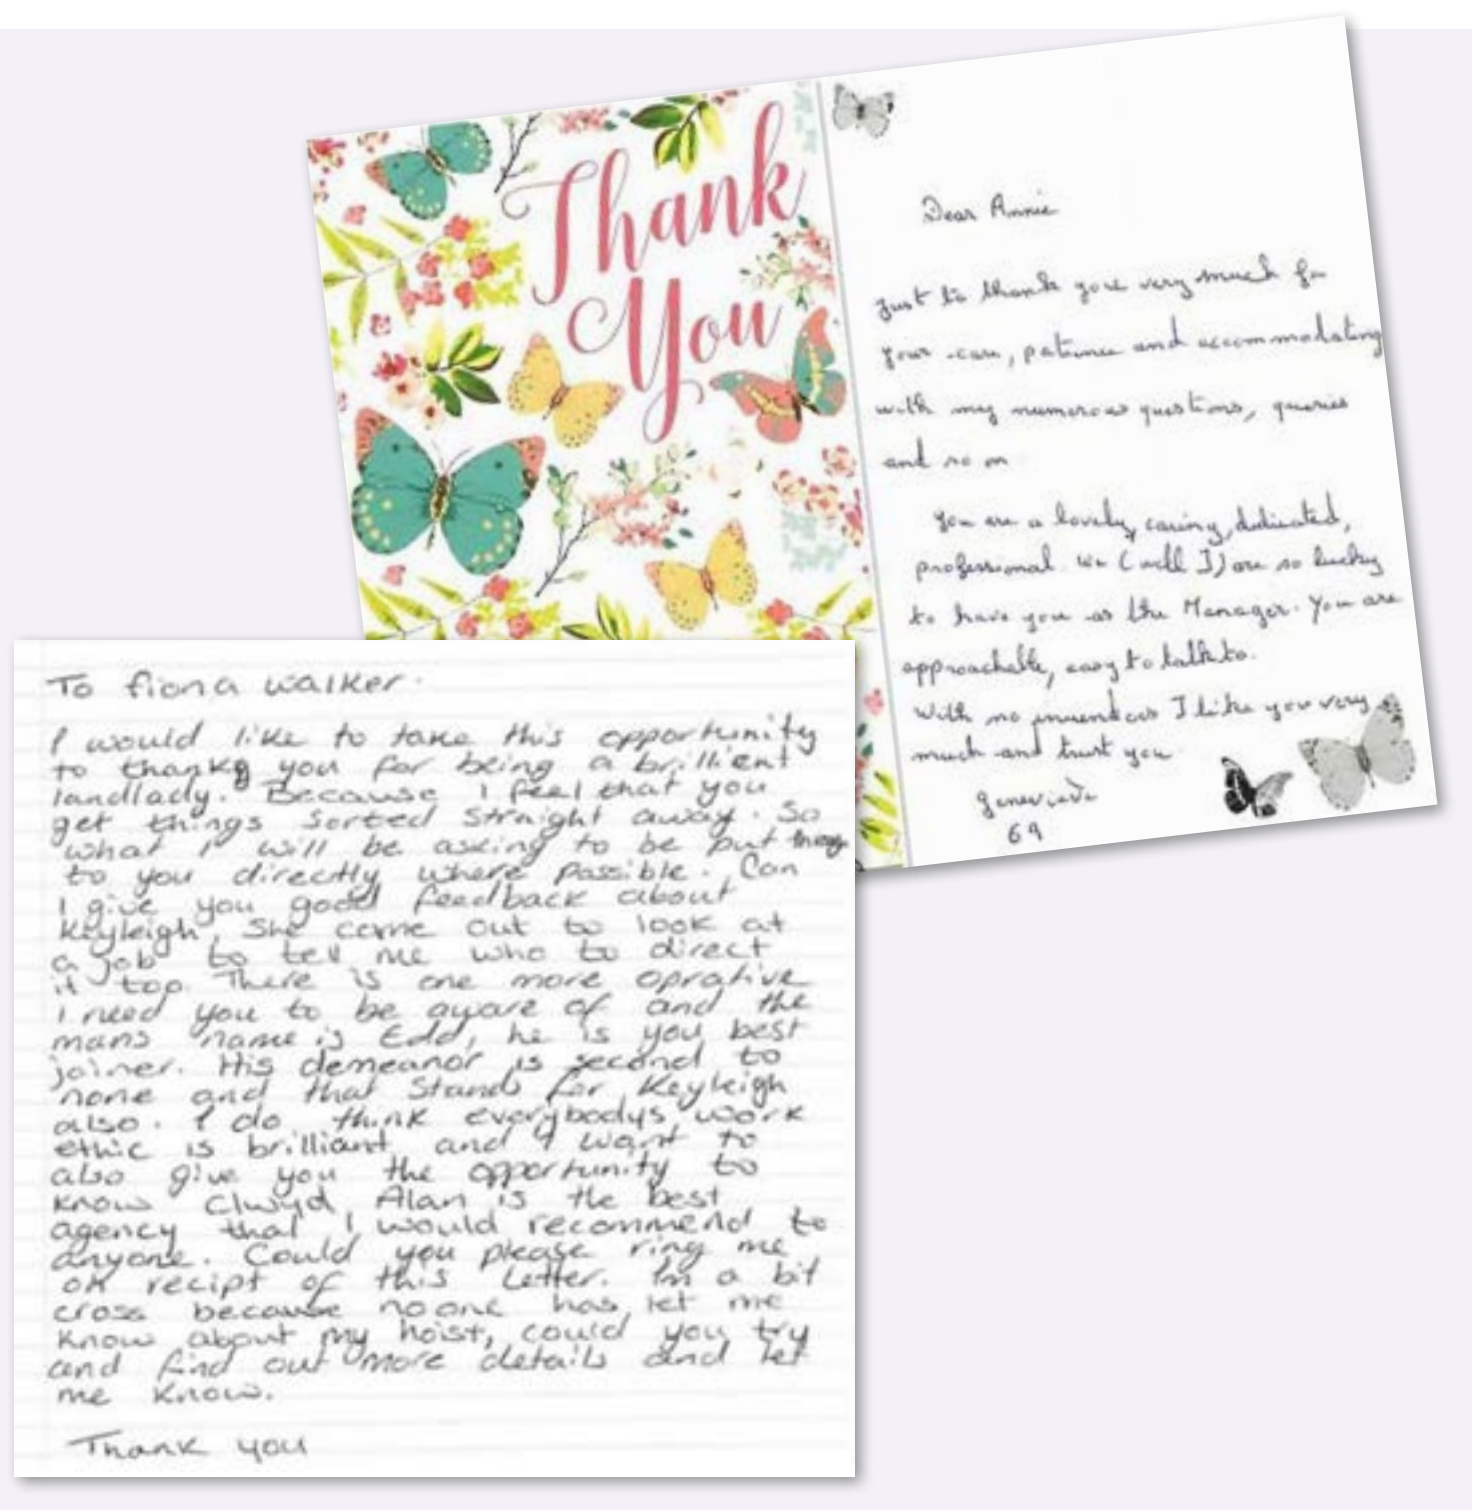 Thank
You
Dear Annie
Just to thank you very much for
your care, patience and accommodating
with my numerous questions, queries
and so on
You are a lovely, caring, dedicated,
professional. We (well I) are so lucky
to have you as the Manager. You are
approachable, easy to talk to.
With no inuendoes I like you very
much and trust you
Genevieve
69
To fiona walker.
I would like to take this opportunity
to thank you for being a brillient
landlady. Because I feel that you
get things sorted straight away. So
what I will be asking to be put things
to you directly where possible. Can
I give you good feedback about
Keyleigh, She came out to look at
a job to tell me who to direct
it too. There is one more oprative
I need you to be aware of and the
mans name is Edd, he is you best
joiner. His demeanor is second to
none and that Stands for Keyleigh
also. I do think everybodys work
ethic is brilliant and I want to
also give you the opportunity to
know Clwyd Alan is the best
agency that I would recommend to
anyone. Could you please ring me
on recipt of this Letter. Im a bit
cross because no one has let me
know about my hoist, could you try
and find out more details and let
me know.
Thank you